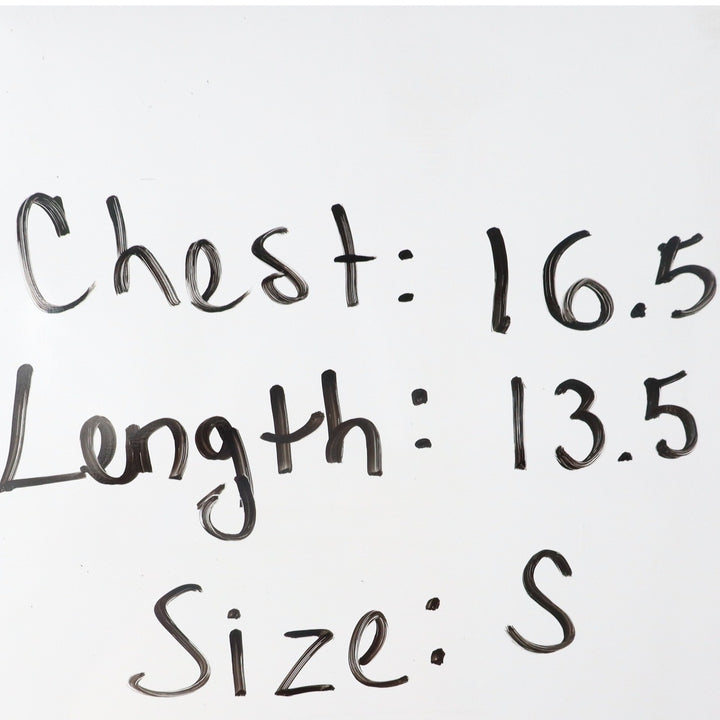 Chest: 16.5
Length: 13.5
Size: S